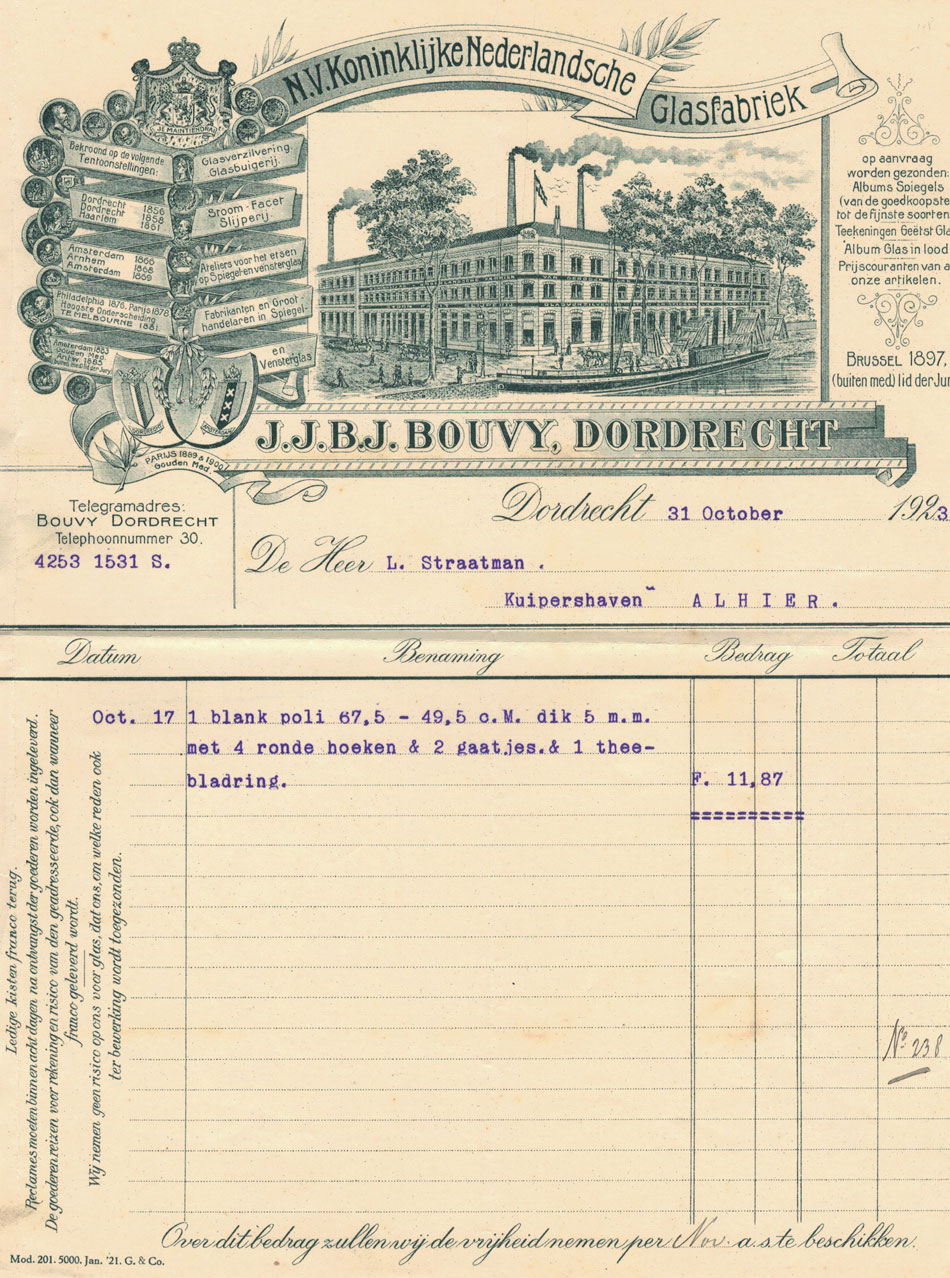 N.V. Koninklijke Nederlandsche Glasfabriek
JE MAINTIENDRAI
Bekroond op de volgende
Tentoonstellingen:
Dordrecht 1856
Dordrecht 1858
Haarlem 1861
Amsterdam 1866
Arnhem 1868
Amsterdam 1869
Philadelphia 1876. Parijs 1878
Hoogste Onderscheiding
TE MELBOURNE 1881
Amsterdam 1883
Gouden Med.
Antw. 1885
Glasverzilvering.
Glasbuigerij.
Stoom-Facet
Slijperij
Ateliers voor het etsen
op Spiegel-en vensterglas
Fabrikanten en Groot-
handelaren in Spiegel-
en
Vensterglas
PARIJS 1889 & 1900
Gouden Med.
op aanvraag
worden gezonden:
Albums Spiegels
(van de goedkoopste
tot de fijnste soorten
Teekeningen Geëtst Gla
Album Glas in lood
Prijscouranten van a
onze artikelen.
BRUSSEL 1897,
(buiten med.) lid der Jur
J.J.B.J. BOUVY, DORDRECHT
Telegramadres:
BOUVY DORDRECHT
Telephoonnummer 30.
4253 1531 S.
Dordrecht 31 October 1923
De Heer L. Straatman .
Kuipershaven A L H I E R .
Datum Benaming Bedrag Totaal
Oct. 17 1 blank poli 67,5 - 49,5 c.M. dik 5 m.m.
met 4 ronde hoeken & 2 gaatjes.& 1 thee-
bladring. F. 11,87
Ledige kisten franco terug.
Reclames moeten binnen acht dagen na ontvangst der goederen worden ingeleverd.
De goederen reizen voor rekening en risico van den geadresseerde, ook dan wanneer
franco geleverd wordt.
Wij nemen geen risico op ons voor glas, dat ons, om welke reden ook
ter bewerking wordt toegezonden.
No. 238
Over dit bedrag zullen wij de vrijheid nemen per Nov. a.s. te beschikken.
Mod. 201. 5000. Jan. '21. G. & Co.